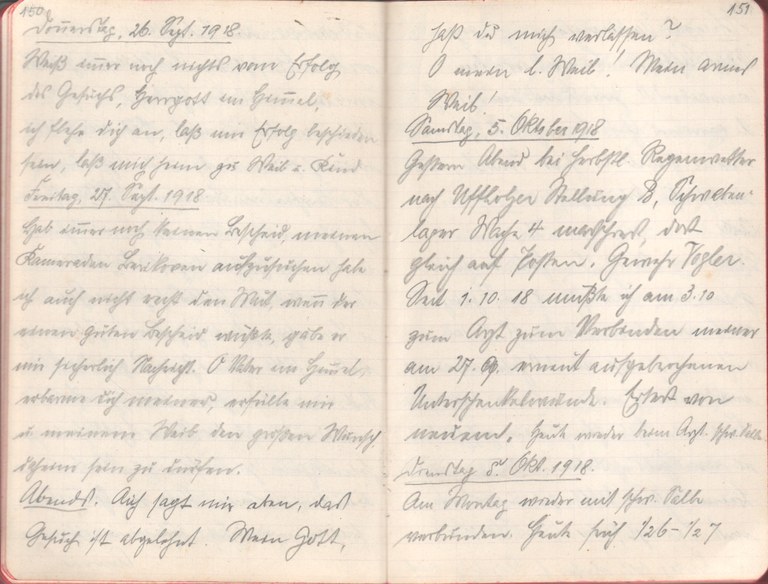 150
Donnerstag, 26. Sept. 1918.
Weiß immer noch nichts vom Erfolg
des Gesuchs, Herrgott im Himmel,
ich flehe dich an, laß mir Erfolg beschieden
sein, laß mich heim zu Weib u. Kind
Freitag, 27. Sept. 1918
Hab immer noch keinen Bescheid, meinen
Kameraden aufzusuchen habe
ich auch nicht recht den Mut, wenn der
einen guten Bescheid wüßte, gäbe er
mir sicherlich Nachricht. O Vater im Himmel
erbarme dich meiner, erfülle mir
u. meinem Weib den großen Wunsch
daheim sein zu dürfen.
Abends. sagt mir eben, das
Gesuch ist abgelehnt. Mein Gott,
151
hast du mich verlassen?
O mein l. Weib! Mein armes
Weib!
Samstag, 5. Oktober 1918
Gestern Abend bei herbstl. Regenwetter
nach Uffholzer Stellung B, Schwaben-
lager Wache 4 marschiert, dort
gleich auf Posten. Gewehr Vogler.
Seit 1.10.18 mußte ich am 3.10
zum Arzt zum Verbinden meiner
am 27.9. erneut aufgebrochenen
Unterschenkelwunde. Eitert von
neuem. Heute wieder beim Arzt. schw. Salbe
Dienstag 8. Okt. 1918.
Am Montag wieder mit schw. Salbe
verbunden. Heute früh 1/26–1/27